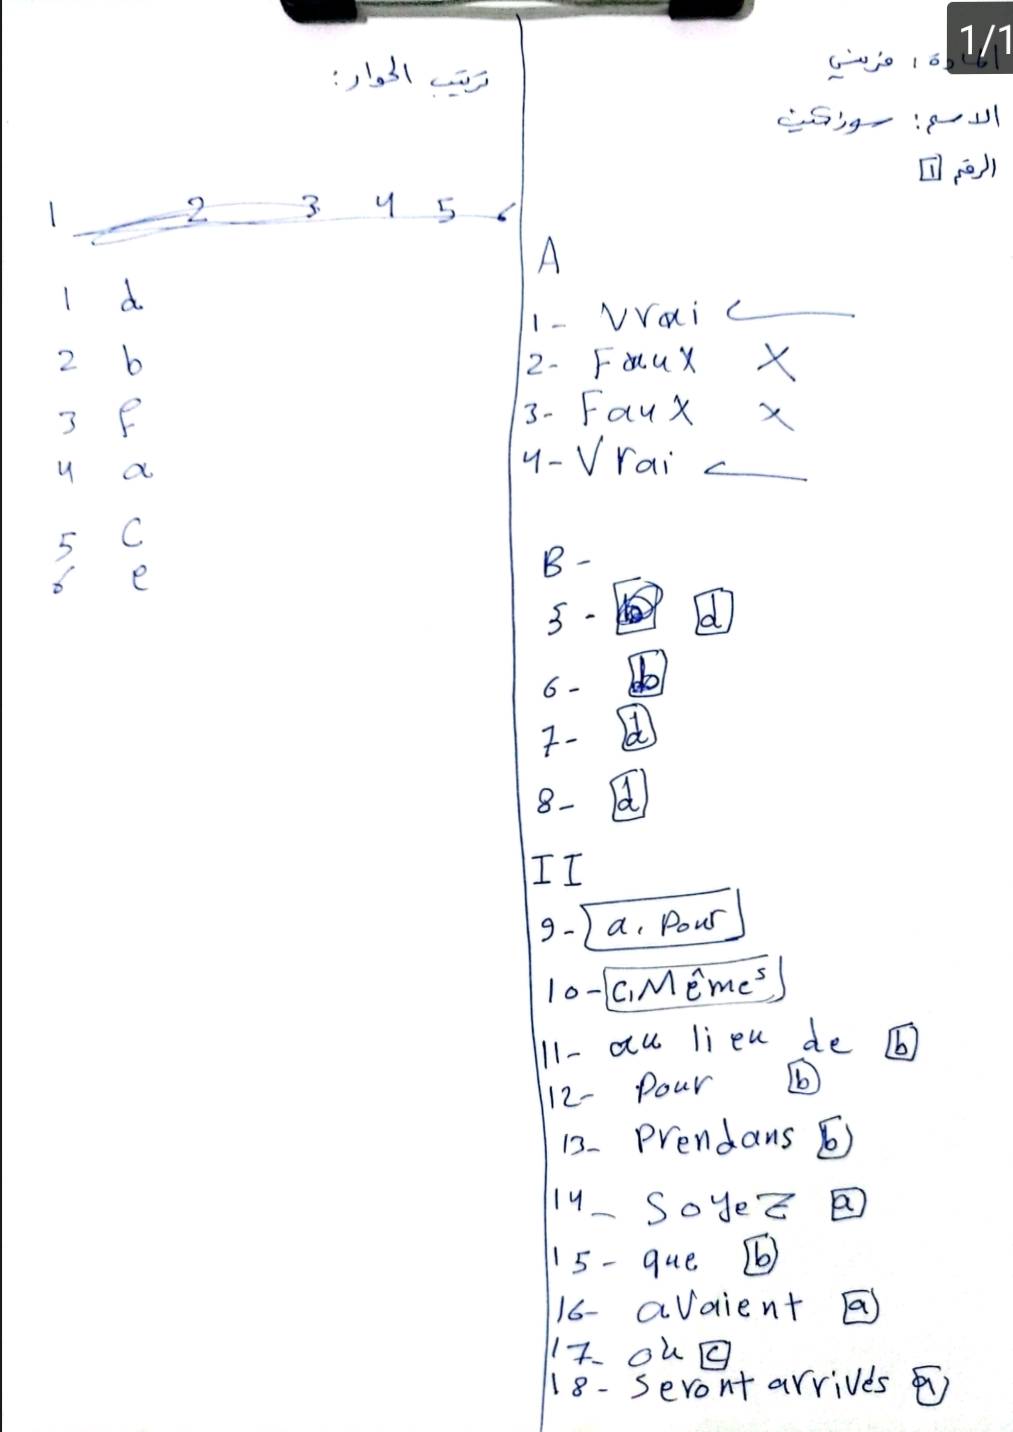 1/1
المادة: فرنسي
الاسم: سوزا
الرقم 1
A
1- Vrai
2- Faux X
3- Faux X
4- Vrai
B-
5- d
6- b
7- d
8- d
II
9- a. Pour
10- C. Mêmes
11- au lieu de b
12- Pour b
13- Prendans b
14- Soyez a
15- que b
16- avaient a
17- où c
18- seront arrivés a
ترتيب الحوار:
1 2 3 4 5 6
1 d
2 b
3 f
4 a
5 C
6 e